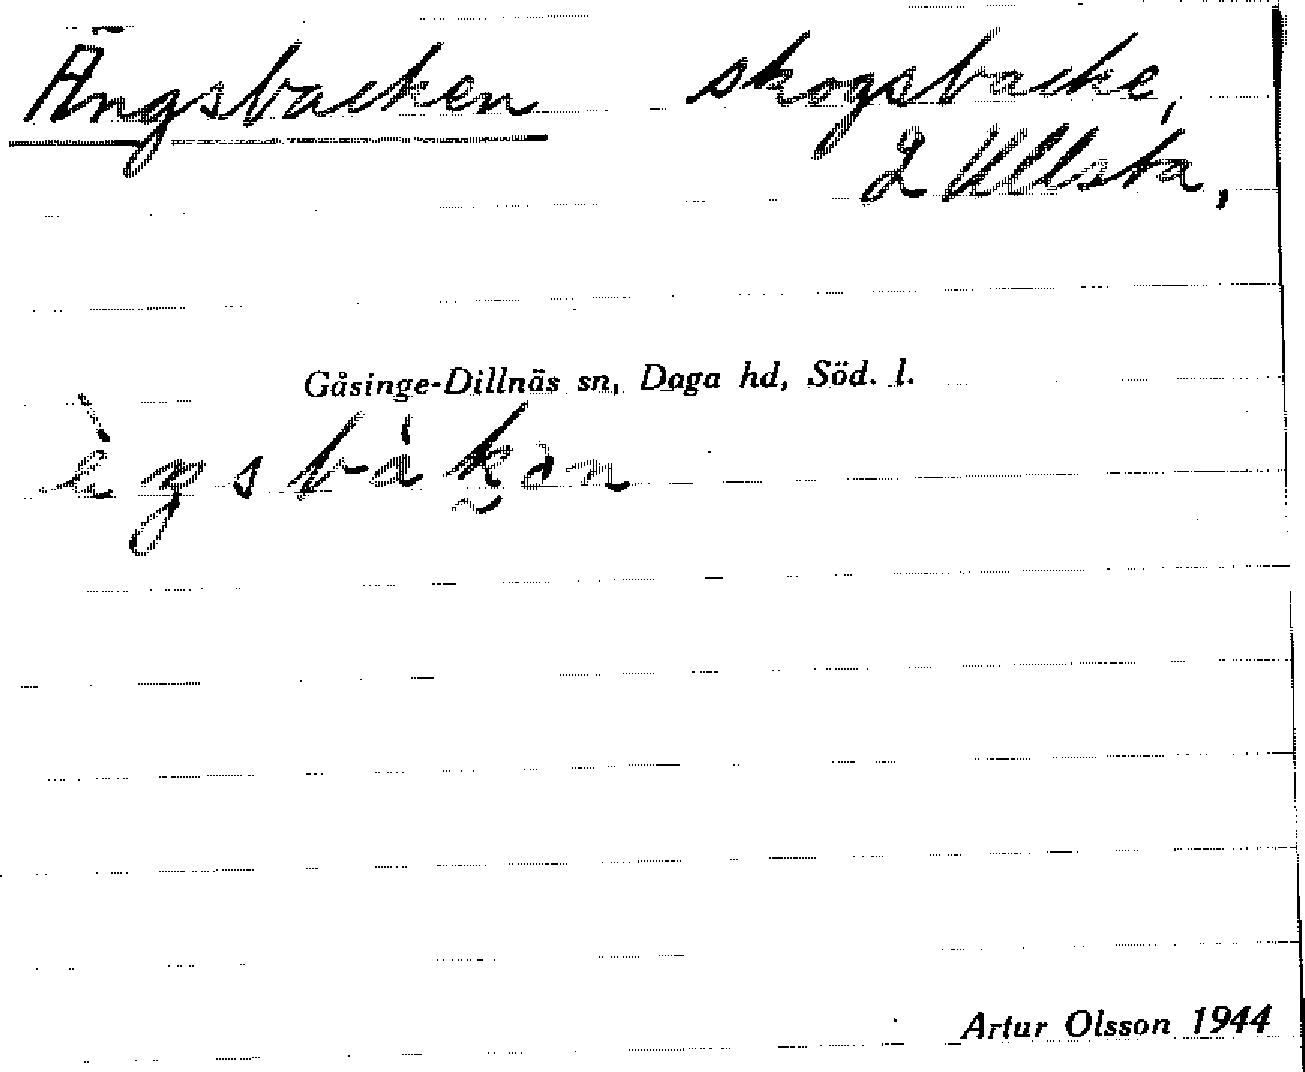 Ängsbacken skogsbacke,
L Ullsta,
Gåsinge-Dillnäs sn, Daga hd, Söd. l.
Artur Olsson 1944